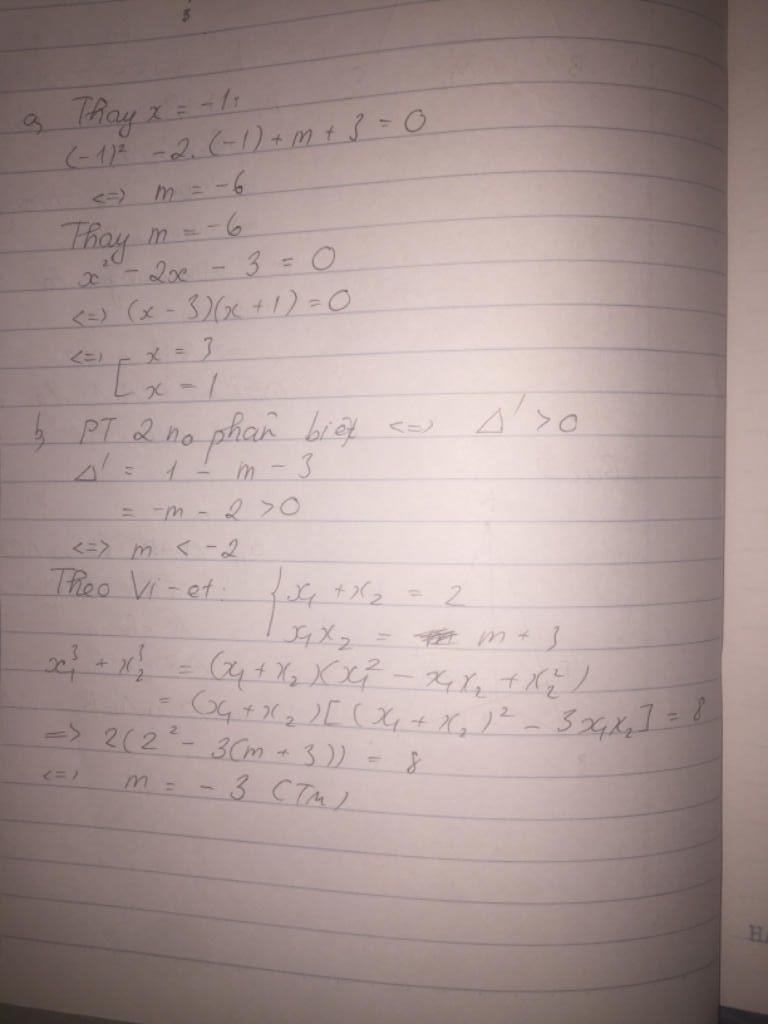 a, Thay x = -1:
(-1)² - 2. (-1) + m + 3 = 0
<=> m = -6
Thay m = -6
x² - 2x - 3 = 0
<=> (x - 3)(x + 1) = 0
<=> [ x = 3
x = 1
b, PT 2 no phân biệt <=> Δ' > 0
Δ' = 1 - m - 3
= -m - 2 > 0
<=> m < -2
Theo Vi-et: { x₁ + x₂ = 2
x₁x₂ = m + 3
x₁³ + x₂³ = (x₁ + x₂)(x₁² - x₁x₂ + x₂²)
= (x₁ + x₂)[(x₁ + x₂)² - 3x₁x₂] = 8
=> 2(2² - 3(m + 3)) = 8
<=> m = - 3 (TM)